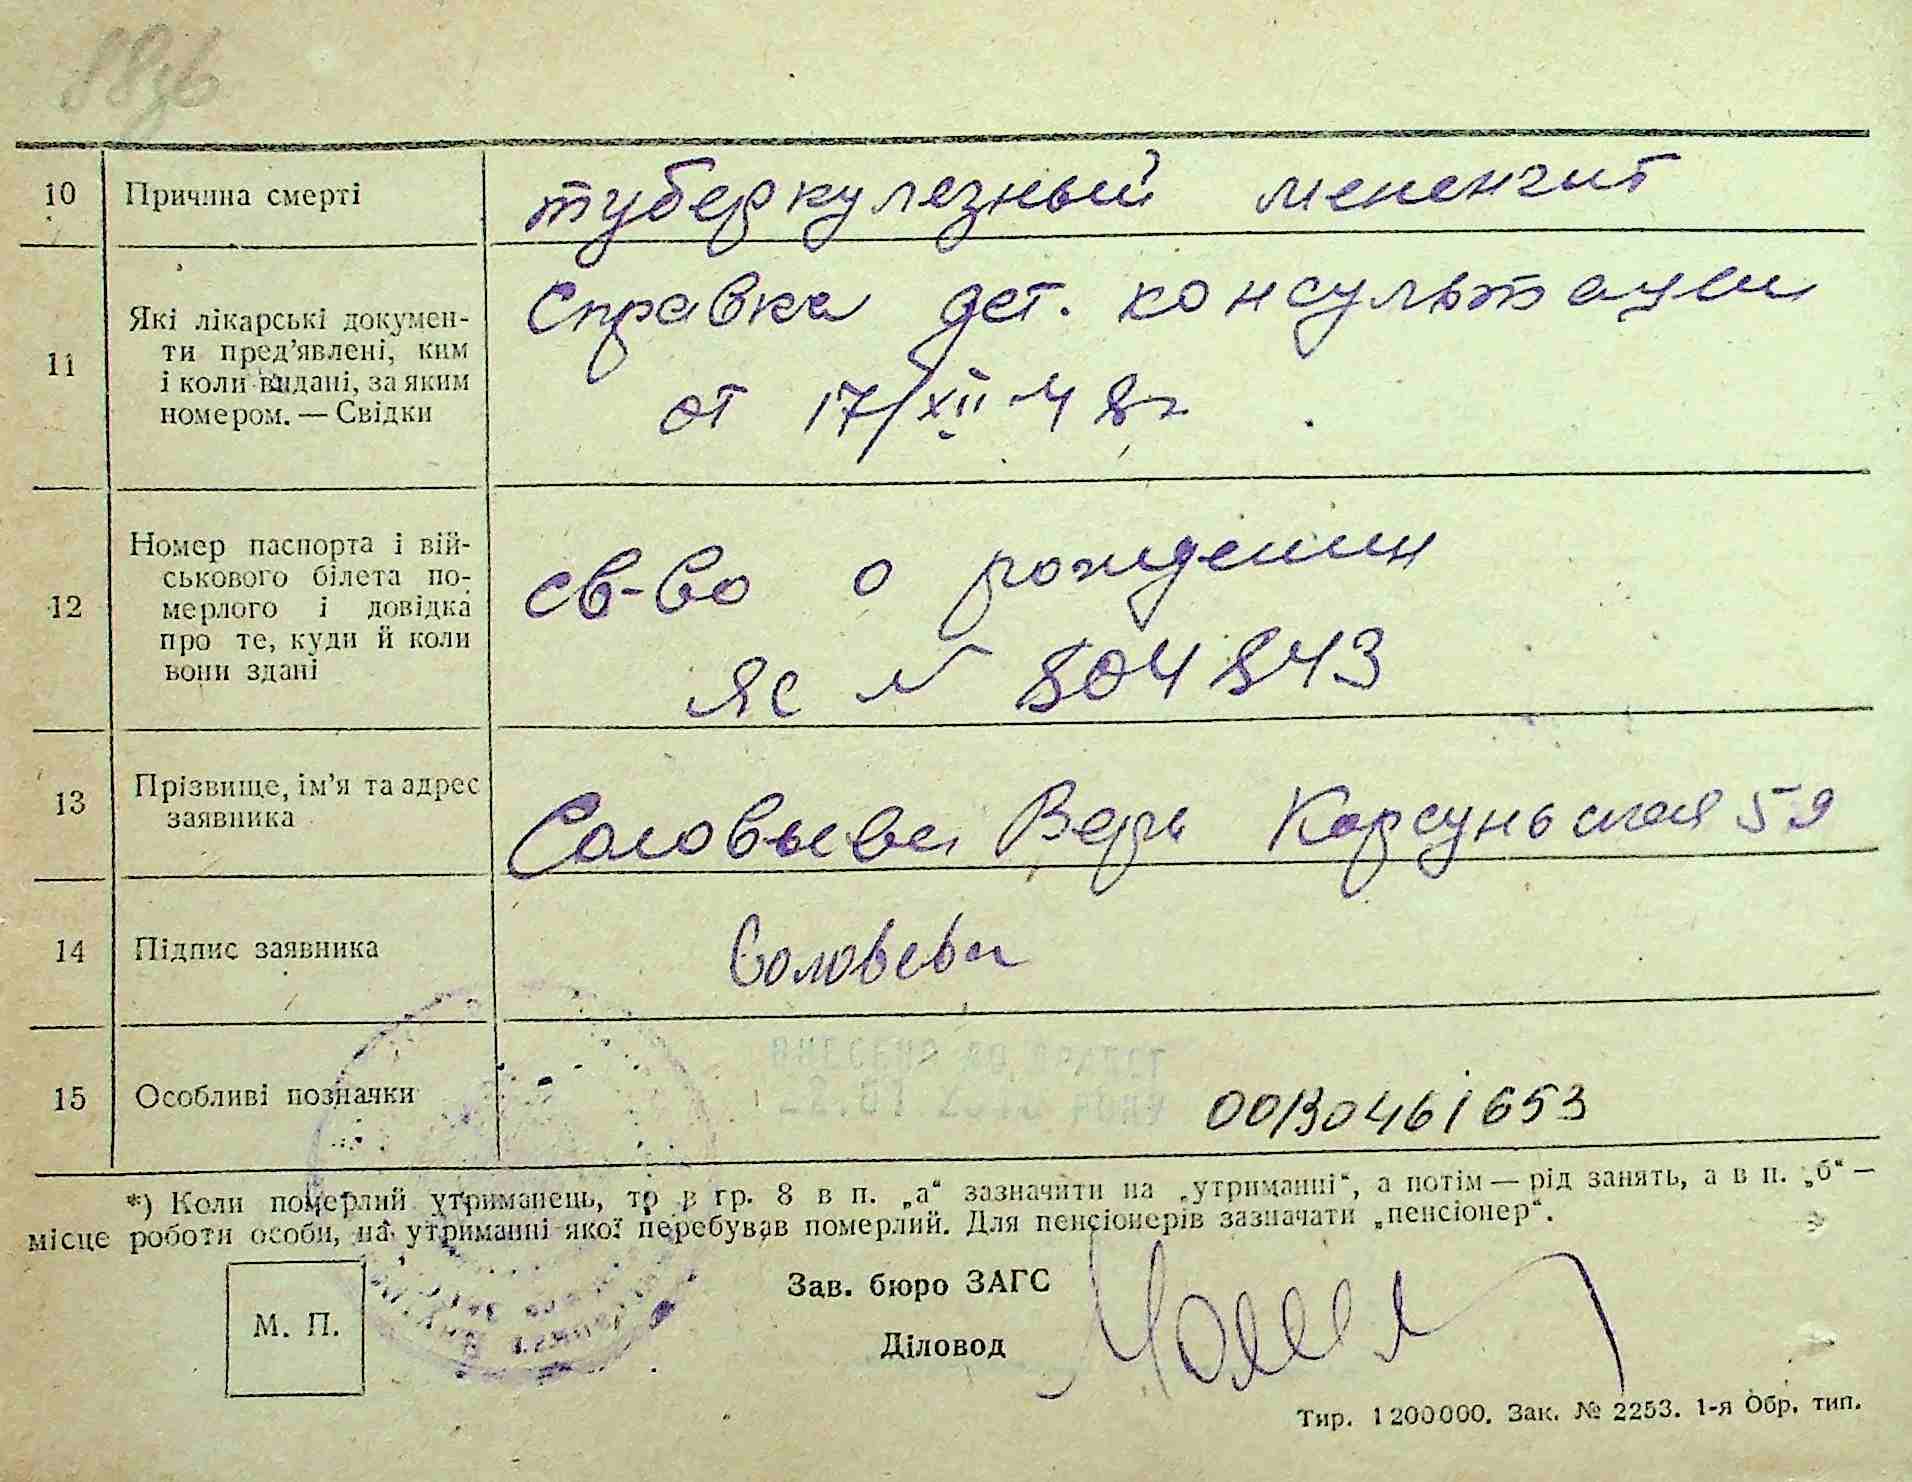 10 Причина смерті туберкулезный мененгит
11 Які лікарські докумен-
ти пред’явлені, ким
і коли видані, за яким
номером. — Свідки
Справка дет. консультации
от 17/XII-48г
12 Номер паспорта і вій-
ськового білета по-
мерлого і довідка
про те, куди й коли
вони здані
св-во о рождении
ЯС N 804843
13 Прізвище, ім’я та адрес
заявника
Соловьева Вера Корсуньская 59
14 Підпис заявника Соловьева
15 Особливі позначки
00130461653
*) Коли померлий утриманець, то в гр. 8 в п. „а“ зазначити на „утриманні“, а потім — рід занять, а в п. „б“ —
місце роботи особи, на утриманні якої перебував померлий. Для пенсіонерів зазначати „пенсіонер“.
М. П.
Зав. бюро ЗАГС
Діловод
Тир. 1200000. Зак. № 2253. 1-я Обр. тип.